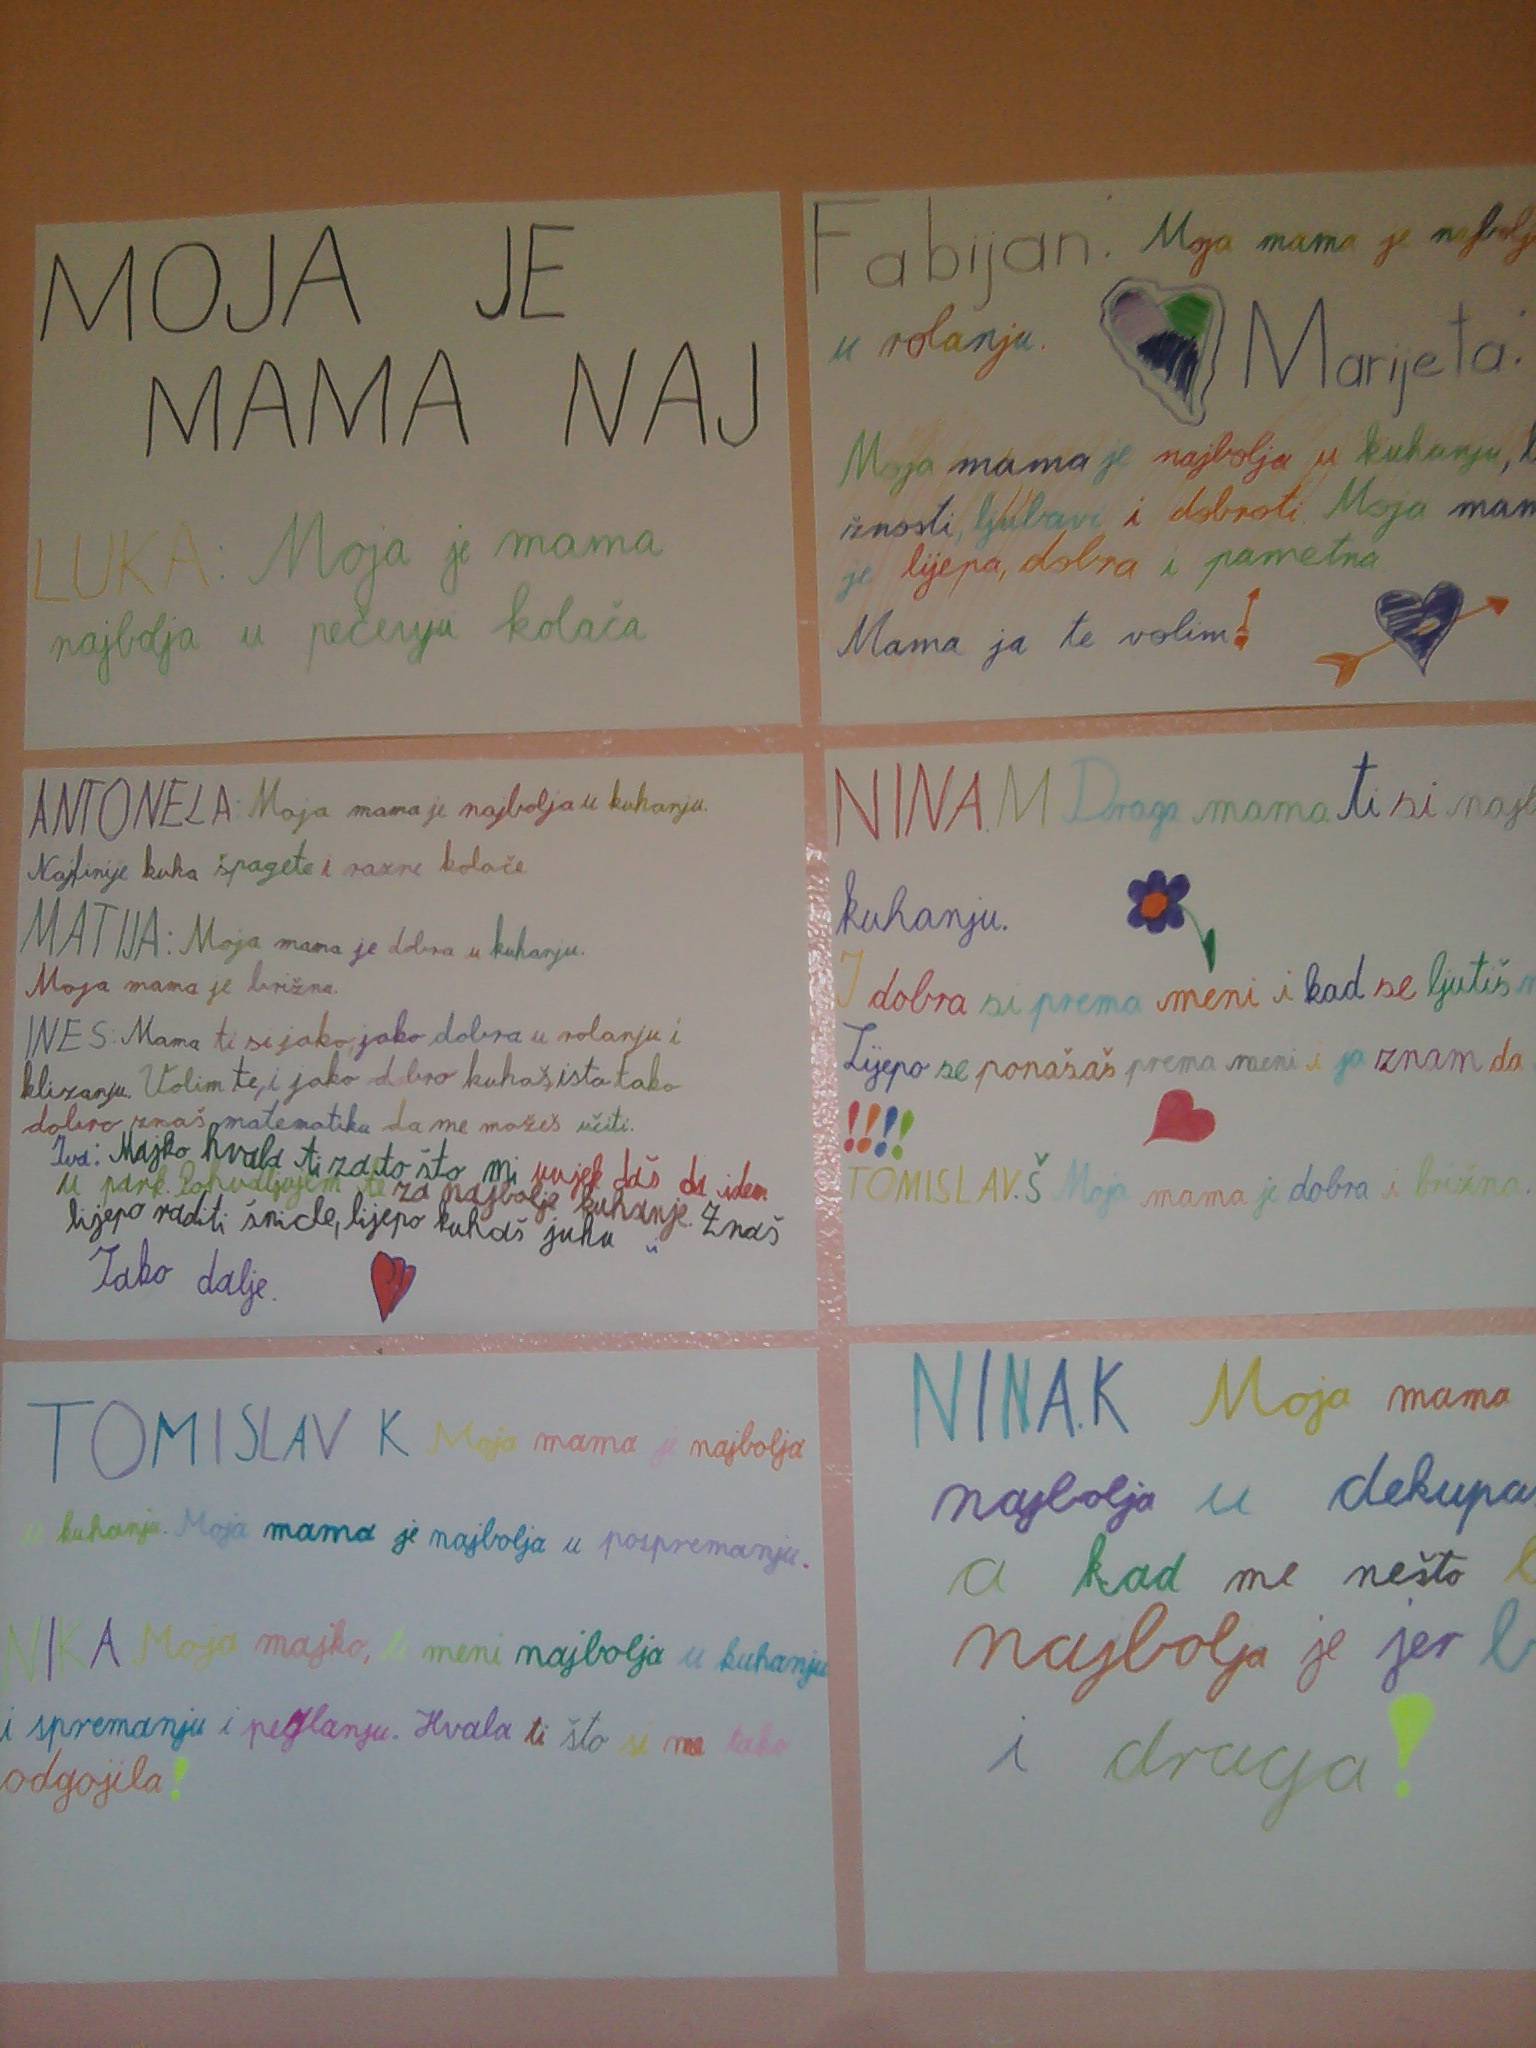 MOJA JE
MAMA NAJ
LUKA: Moja je mama
najbolja u pečenju kolača
Fabijan: Moja mama je
u rolanju.
Marijeta:
Moja mama je najbolja u kuhanju,
žnosti, ljubavi i dobroti. Moja
je lijepa, dobra i pametna
Mama ja te volim!
ANTONELA: Moja mama je najbolja u kuhanju.
Najfinije kuha špagete i razne kolače
MATIJA: Moja mama je dobra u kuhanju.
Moja mama je brižna.
INES: Mama ti si jako, jako dobra u rolanju i
klizanju. Volim te, i jako dobro kuhaš, ista tako
dobro znaš matematiku da me možeš učiti.
Iva: Majko hvala ti zato što mi uvjek daš da idem
u park. Pohvaljujem te za najbolje kuhanje. Znaš
lijepo raditi šnicle, lijepo kuhaš juhu
Tako dalje.
NINA.M Draga mama ti si
kuhanju.
I dobra si prema meni i kad se ljutiš
Lijepo se ponašaš prema meni i ja znam da
!!!!
TOMISLAV.Š Moja mama je dobra i brižna.
TOMISLAV K Moja mama je najbolja
u kuhanju. Moja mama je najbolja u pospremanju.
NIKA Moja majko, ti meni najbolja u kuhanju
i spremanju i peglanju. Hvala ti što si me tako
odgojila!
NINA.K Moja mama
najbolja u
a kad me nešto
najbolja je jer
i draga!